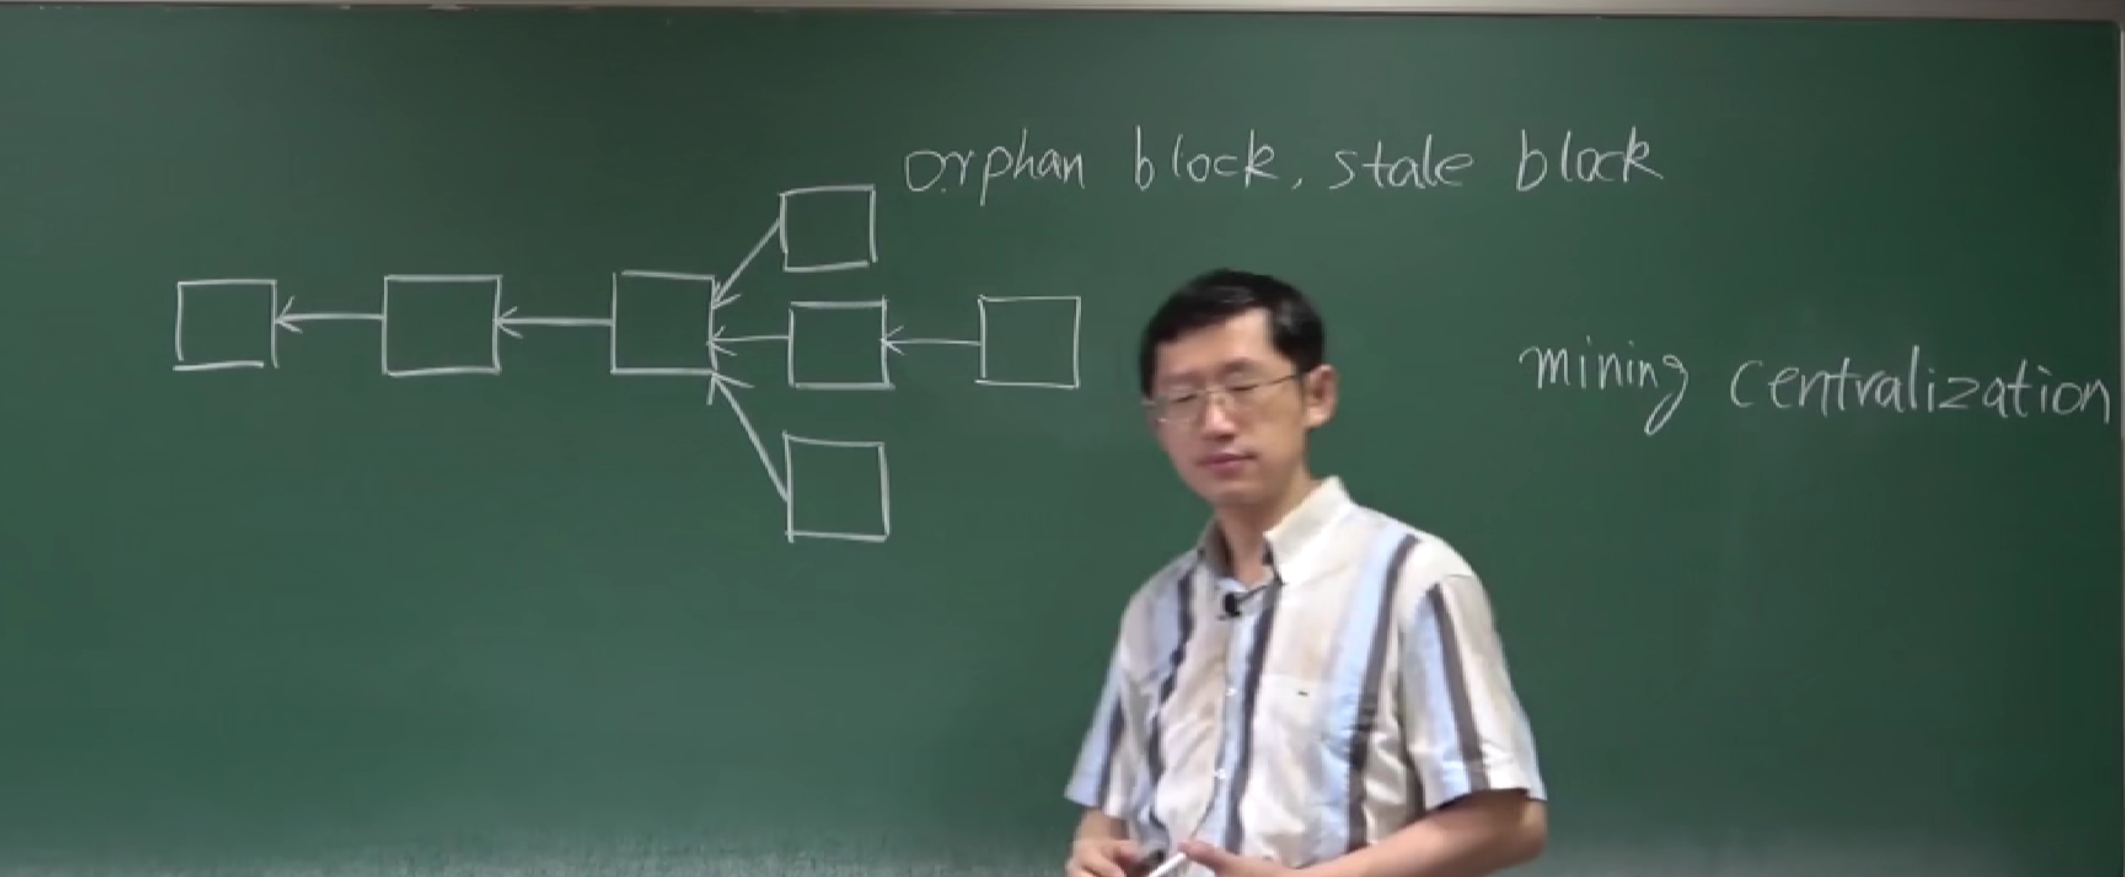 orphan block, stale block
mining centralization